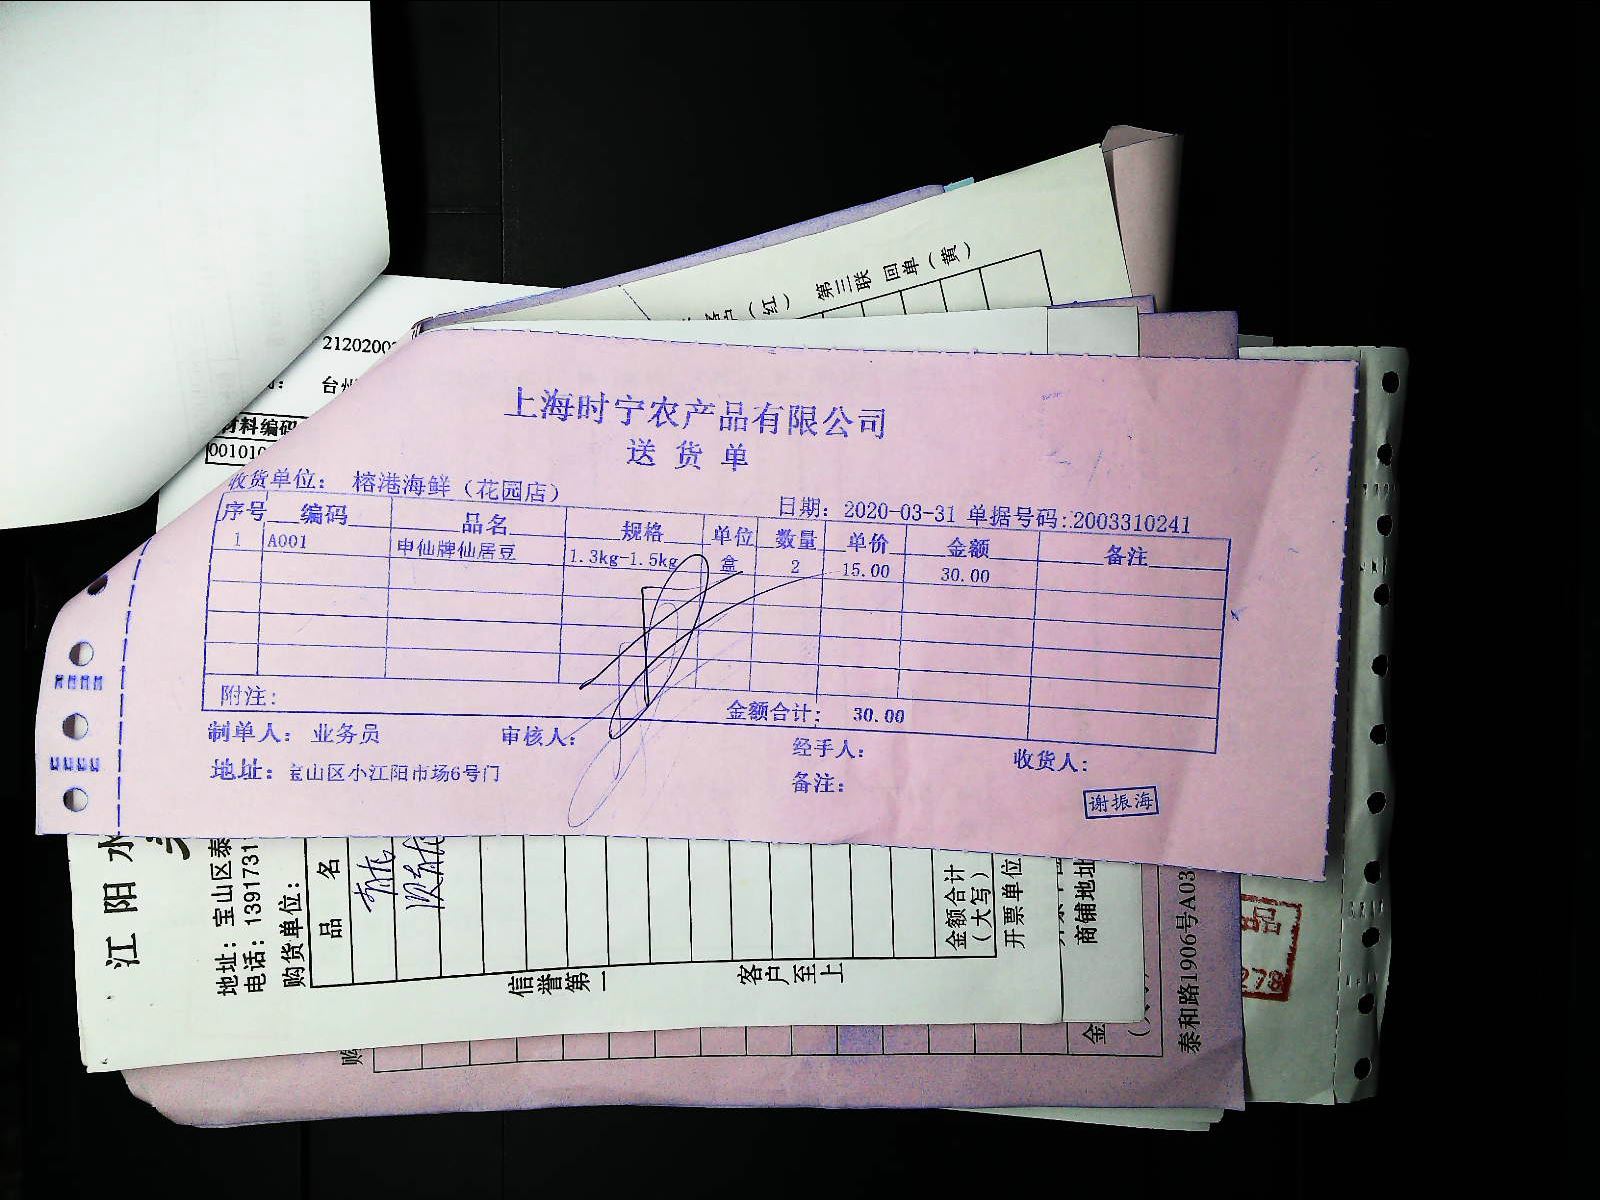 第三联 回单（黄）
（红）
2120200
台州
材料编码
00101
上海时宁农产品有限公司
送货单
收货单位： 榕港海鲜（花园店）
日期：2020-03-31 单据号码：2003310241
序号 编码 品名 规格 单位 数量 单价 金额 备注
1 A001 申仙牌仙居豆 1.3kg-1.5kg 盒 2 15.00 30.00
附注：
金额合计： 30.00
制单人： 业务员 审核人： 经手人： 收货人：
地址：宝山区小江阳市场6号门 备注：
谢振海
江阳水
地址：宝山区泰
电话：1391731
购货单位：
品名
信誉第一 客户至上
金额合计
（大写）
开票单位
商铺地址
泰和路1906号A03